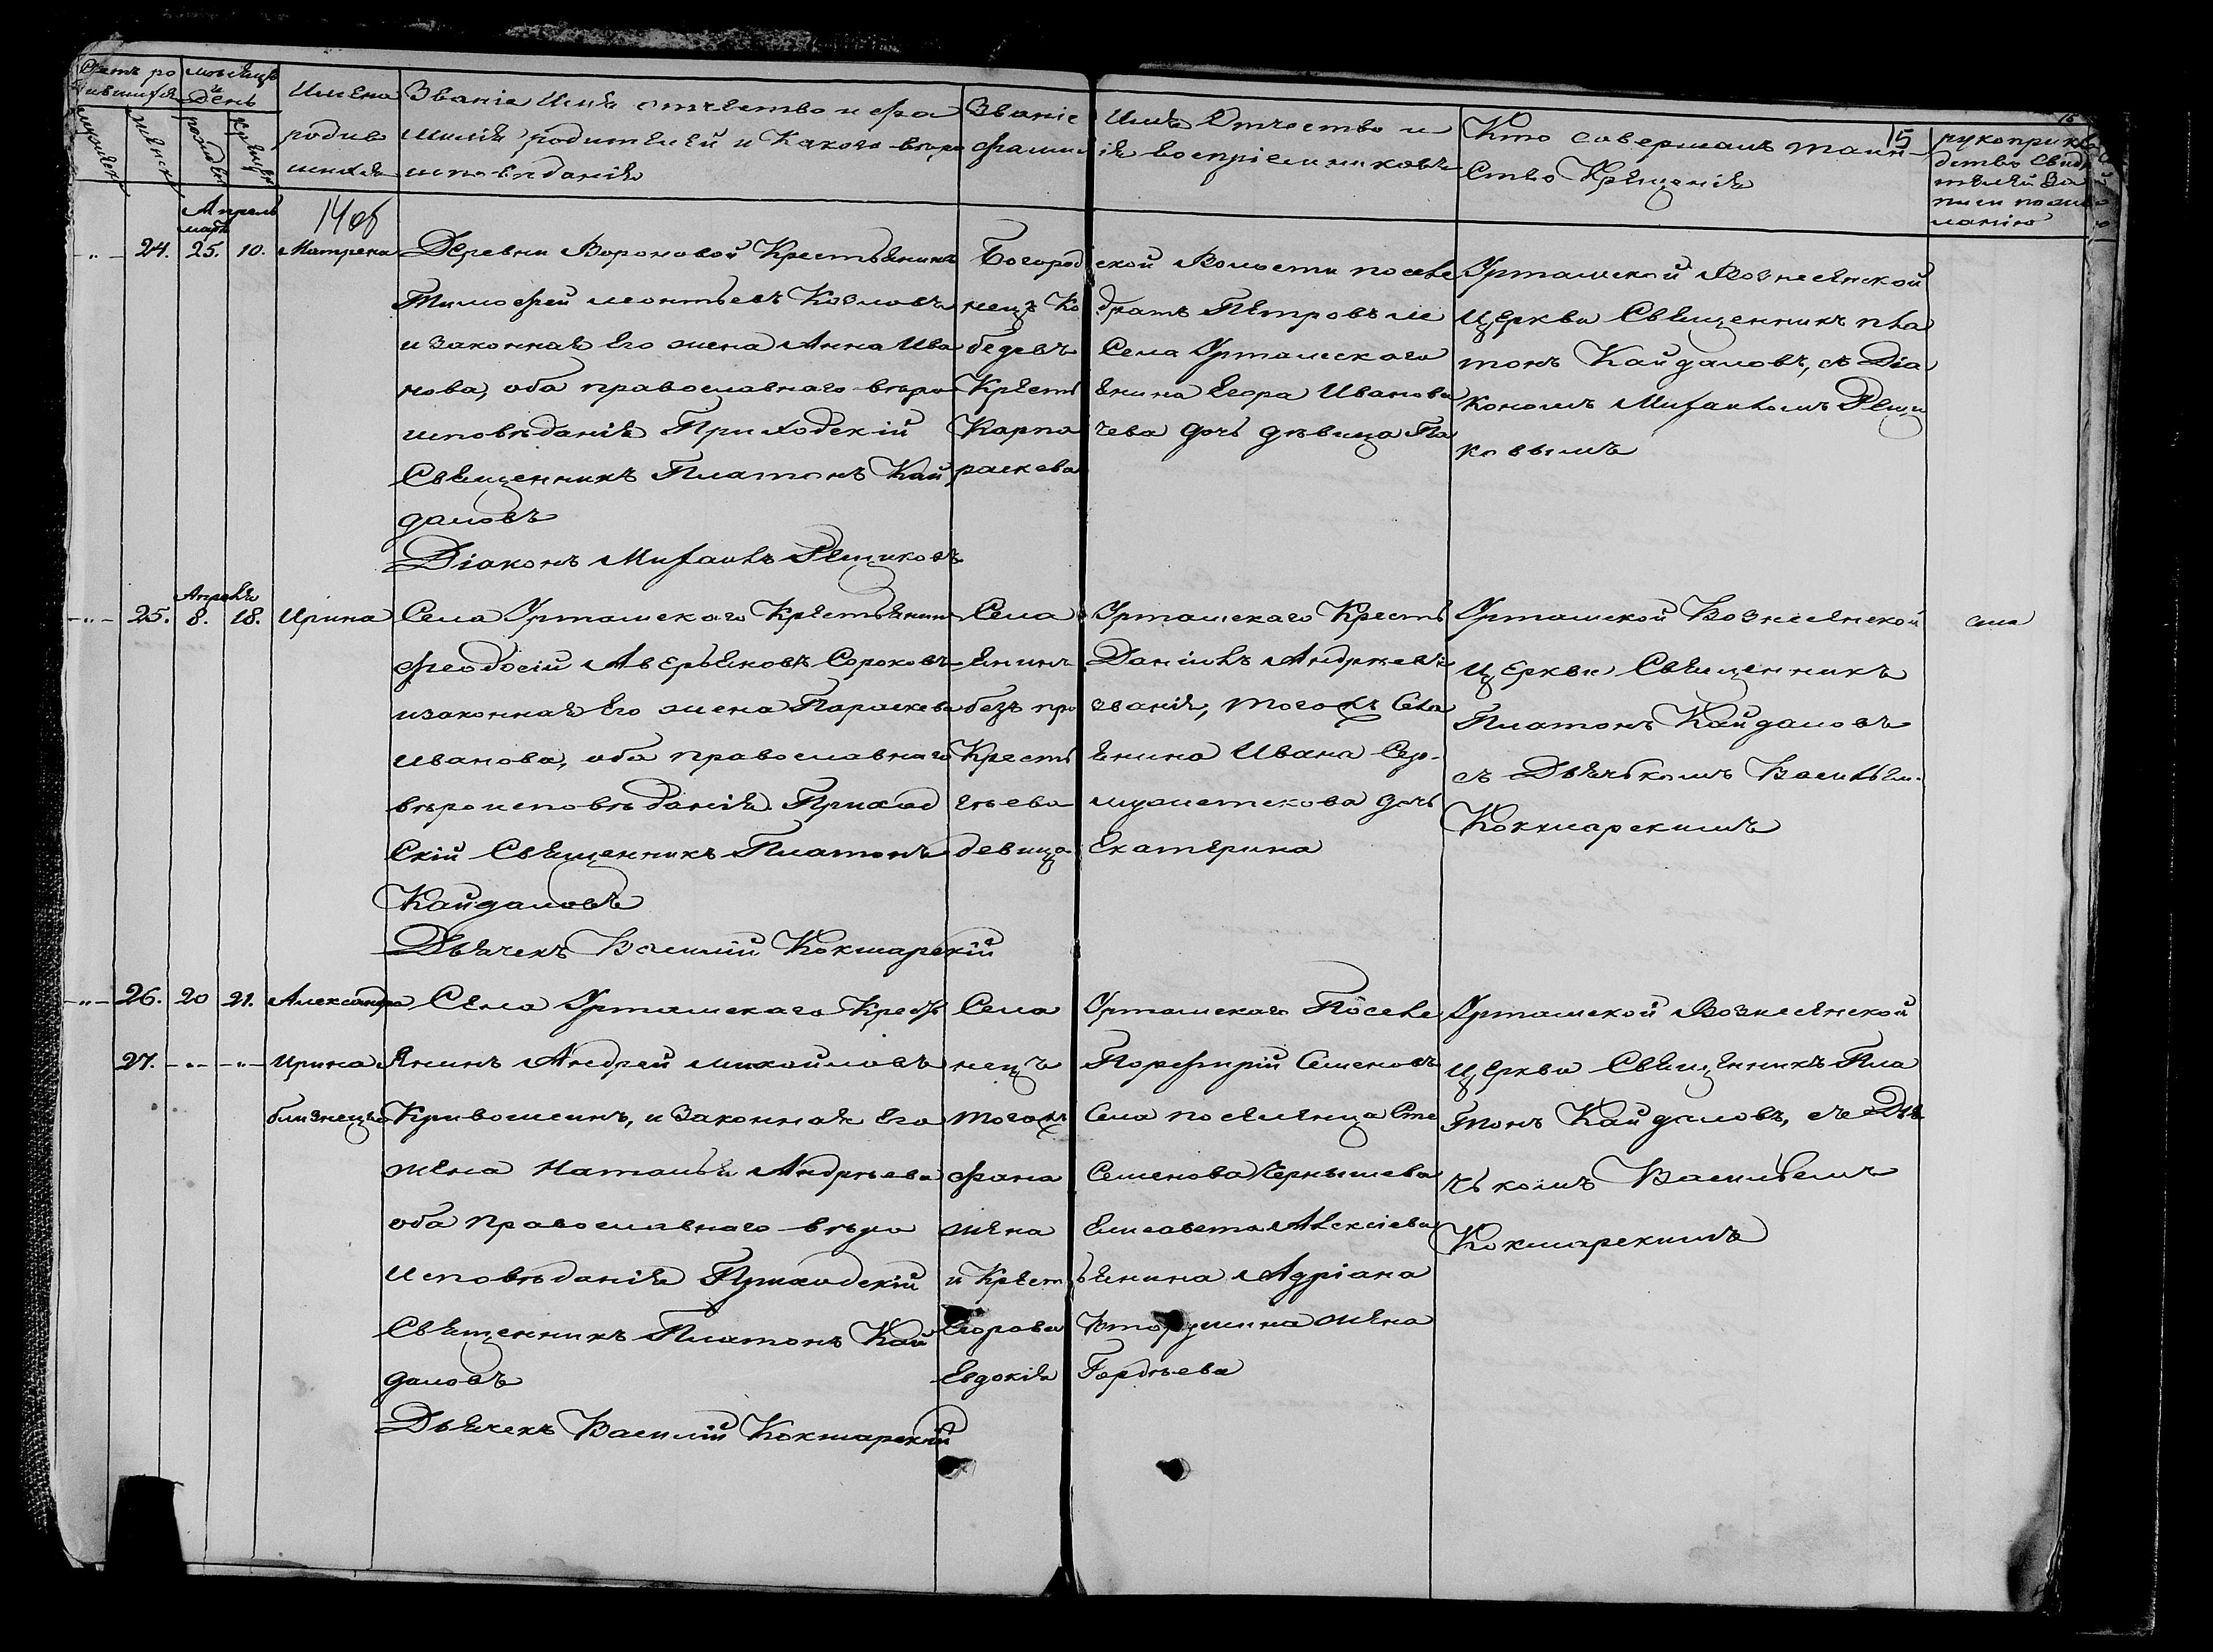 Счетъ ро дившихся
мужеска
женска
мѣсяцъ и день
рожденія
крещенія
Имена родив шихся
Званіе Имя отчество и фа
милія родителей и Какого вѣро
исповѣданія
Званіе Имя Отчество и
фамилія воспріемниковъ
Кто совершалъ таин
ство Крещенія
рукоприкла
дство свидѣ
телей За
писи по же
ланію
15
14 об
Апрель
мар.
24. 25. 10. Матрена
Деревни Вороновой Крестьянинъ
Тимофей Леонтьевъ Козловъ
и законная Его жена Анна Ива
нова, оба православнаго вѣро
исповѣданія Приходскій
Священникъ Платонъ Кай
даловъ
Діаконъ Михаилъ Рещиковъ
Богородской Волости поселе
нецъ Кондратъ Петровъ Ле
бедевъ Села Урташскаго
Крестьянина Егора Иванова
Карпачева дочь дѣвица Па
раскева
Урташской Вознесенской
Церкви Священникъ Пла
тонъ Кайдаловъ, съ Діа
кономъ Михаиломъ Рещи
ковымъ
Апрѣля
25. 8. 18. Ирина
Села Урташскаго Крестьянинъ
Феодосій Аверьяновъ Сороковъ
и законная Его жена Параскева
Иванова, оба православнаго
вѣроисповѣданія Приход
скій Священникъ Платонъ
Кайдаловъ
Дьячекъ Василій Кокшарскій
Села Урташскаго Кресть
янинъ Даніилъ Андреевъ
безъ прозванія, тогожъ Села
Крестьянина Ивана Сер
гѣева дочь
девица Екатерина
Урташской Вознесенской
Церкви Священникъ
Платонъ Кайдаловъ
съ Дьячкомъ Васильем.
Кокшарскимъ
26. 20 21. Александра
27. Ирина
близнецы
Села Урташскаго Кресть
янинъ Андрей Михайловъ
Кривошеинъ, и Законная Его
жена Наталья Андреева
оба православнаго вѣро
исповѣданія Приходскій
Священникъ Платонъ Кай
даловъ
Дьячекъ Василій Кокшарскій
Села Урташскаго Поселе
нецъ Порфирій Семеновъ
тогожъ Села поселенца Сте
фана Семенова Чернышева
жена Елисавета Алексіева
и Крестьянина Адріана
Егорова Вторушина жена
Евдокія Гордѣева
Урташской Вознесенской
Церкви Священникъ Пла
тонъ Кайдаловъ, съ Дья
чькомъ Васильемъ
Кокшарскимъ